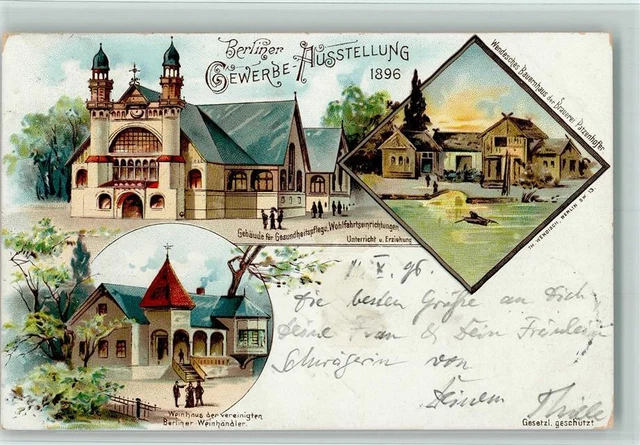 Berliner
Gewerbe-Ausstellung
1896
Wendisches Bauernhaus der Brauerei Patzenhofer
Gebäude für Gesundheitspflege, Wohlfahrtseinrichtungen
Unterricht u. Erziehung
TH. WENDISCH, BERLIN SW 13
V. 96.
Die besten Grüße an Dich
Deine Frau & Dein Fräulein
Schwägerin von
Deinem Thiele
Weinhaus der vereinigten
Berliner Weinhändler.
Gesetzl. geschützt